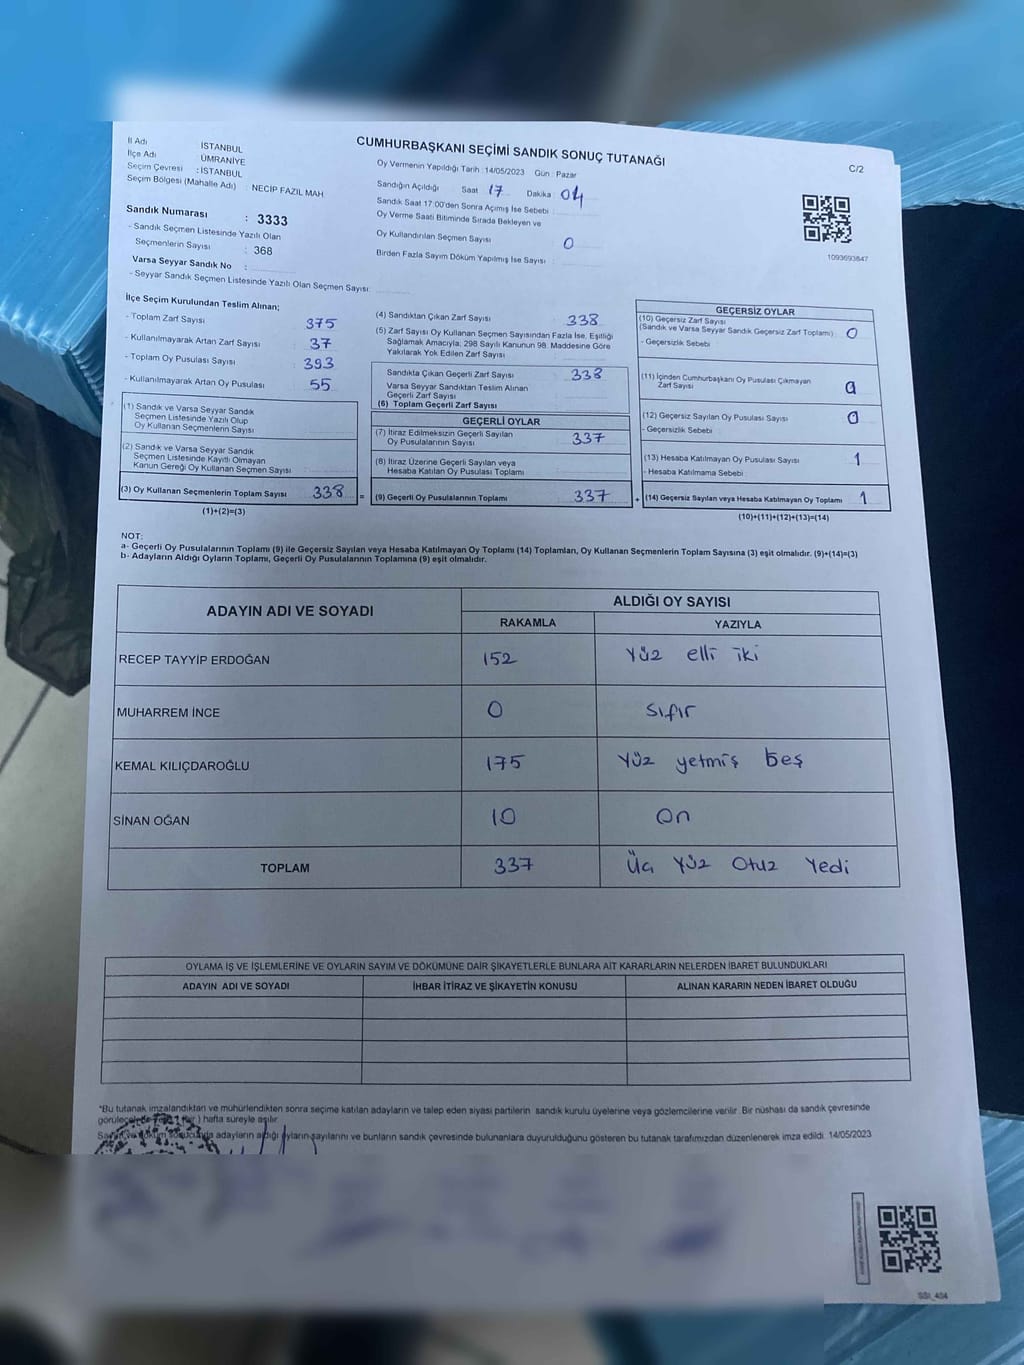 CUMHURBAŞKANI SEÇİMİ SANDIK SONUÇ TUTANAĞI
C/2
İl Adı İSTANBUL
İlçe Adı ÜMRANİYE
Seçim Çevresi : İSTANBUL
Seçim Bölgesi (Mahalle Adı) NECİP FAZIL MAH.
Oy Vermenin Yapıldığı Tarih :14/05/2023 Gün : Pazar
Sandığın Açıldığı Saat 17 Dakika : 04
Sandık Saat 17.00'den Sonra Açımış İse Sebebi :
Oy Verme Saati Bitiminde Sırada Bekleyen ve
Oy Kullandırılan Seçmen Sayısı 0
Birden Fazla Sayım Döküm Yapılmış İse Sayısı :
Sandık Numarası : 3333
- Sandık Seçmen Listesinde Yazılı Olan
Seçmenlerin Sayısı : 368
Varsa Seyyar Sandık No :
- Seyyar Sandık Seçmen Listesinde Yazılı Olan Seçmen Sayısı:
1093693847
İlçe Seçim Kurulundan Teslim Alınan;
- Toplam Zarf Sayısı 375
- Kullanılmayarak Artan Zarf Sayısı 37
- Toplam Oy Pusulası Sayısı 393
- Kullanılmayarak Artan Oy Pusulası 55
(1) Sandık ve Varsa Seyyar Sandık
Seçmen Listesinde Yazılı Olup
Oy Kullanan Seçmenlerin Sayısı
(2) Sandık ve Varsa Seyyar Sandık
Seçmen Listesinde Kayıtlı Olmayan
Kanun Gereği Oy Kullanan Seçmen Sayısı
(3) Oy Kullanan Seçmenlerin Toplam Sayısı 338 =
(1)+(2)=(3)
(4) Sandıktan Çıkan Zarf Sayısı 338
(5) Zarf Sayısı Oy Kullanan Seçmen Sayısından Fazla İse, Eşitliği
Sağlamak Amacıyla, 298 Sayılı Kanunun 98. Maddesine Göre
Yakılarak Yok Edilen Zarf Sayısı
Sandıkta Çıkan Geçerli Zarf Sayısı 338
Varsa Seyyar Sandıktan Teslim Alınan
Geçerli Zarf Sayısı
(6) Toplam Geçerli Zarf Sayısı
GEÇERLİ OYLAR
(7) İtiraz Edilmeksizin Geçerli Sayılan
Oy Pusulalarının Sayısı 337
(8) İtiraz Üzerine Geçerli Sayılan veya
Hesaba Katılan Oy Pusulası Toplamı
(9) Geçerli Oy Pusulalarının Toplamı 337 +
GEÇERSİZ OYLAR
(10) Geçersiz Zarf Sayısı
(Sandık ve Varsa Seyyar Sandık Geçersiz Zarf Toplamı) : 0
- Geçersizlik Sebebi
(11) İçinden Cumhurbaşkanı Oy Pusulası Çıkmayan
Zarf Sayısı 0
(12) Geçersiz Sayılan Oy Pusulası Sayısı 0
- Geçersizlik Sebebi
(13) Hesaba Katılmayan Oy Pusulası Sayısı 1
- Hesaba Katılmama Sebebi
(14) Geçersiz Sayılan veya Hesaba Katılmayan Oy Toplamı 1
(10)+(11)+(12)+(13)=(14)
NOT:
a- Geçerli Oy Pusulalarının Toplamı (9) ile Geçersiz Sayılan veya Hesaba Katılmayan Oy Toplamı (14) Toplamları, Oy Kullanan Seçmenlerin Toplam Sayısına (3) eşit olmalıdır. (9)+(14)=(3)
b- Adayların Aldığı Oyların Toplamı, Geçerli Oy Pusulalarının Toplamına (9) eşit olmalıdır.
ADAYIN ADI VE SOYADI ALDIĞI OY SAYISI
RAKAMLA YAZIYLA
RECEP TAYYİP ERDOĞAN 152 Yüz elli iki
MUHARREM İNCE 0 Sıfır
KEMAL KILIÇDAROĞLU 175 Yüz yetmiş beş
SİNAN OĞAN 10 On
TOPLAM 337 Üç Yüz Otuz Yedi
OYLAMA İŞ VE İŞLEMLERİNE VE OYLARIN SAYIM VE DÖKÜMÜNE DAİR ŞİKAYETLERLE BUNLARA AİT KARARLARIN NELERDEN İBARET BULUNDUKLARI
ADAYIN ADI VE SOYADI İHBAR İTİRAZ VE ŞİKAYETİN KONUSU ALINAN KARARIN NEDEN İBARET OLDUĞU
*Bu tutanak imzalandıktan ve mühürlendikten sonra seçime katılan adayların ve talep eden siyasi partilerin sandık kurulu üyelerine veya gözlemcilerine verilir. Bir nüshası da sandık çevresinde
hafta süreyle asılır.
adayların aldığı oyların sayılarını ve bunların sandık çevresinde bulunanlara duyurulduğunu gösteren bu tutanak tarafımızdan düzenlenerek imza edildi. 14/05/2023